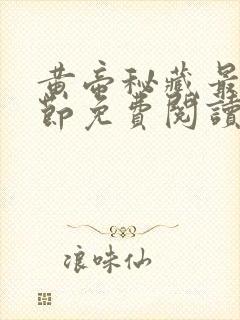 黄帝秘藏最
節免費閱讀
浪味仙